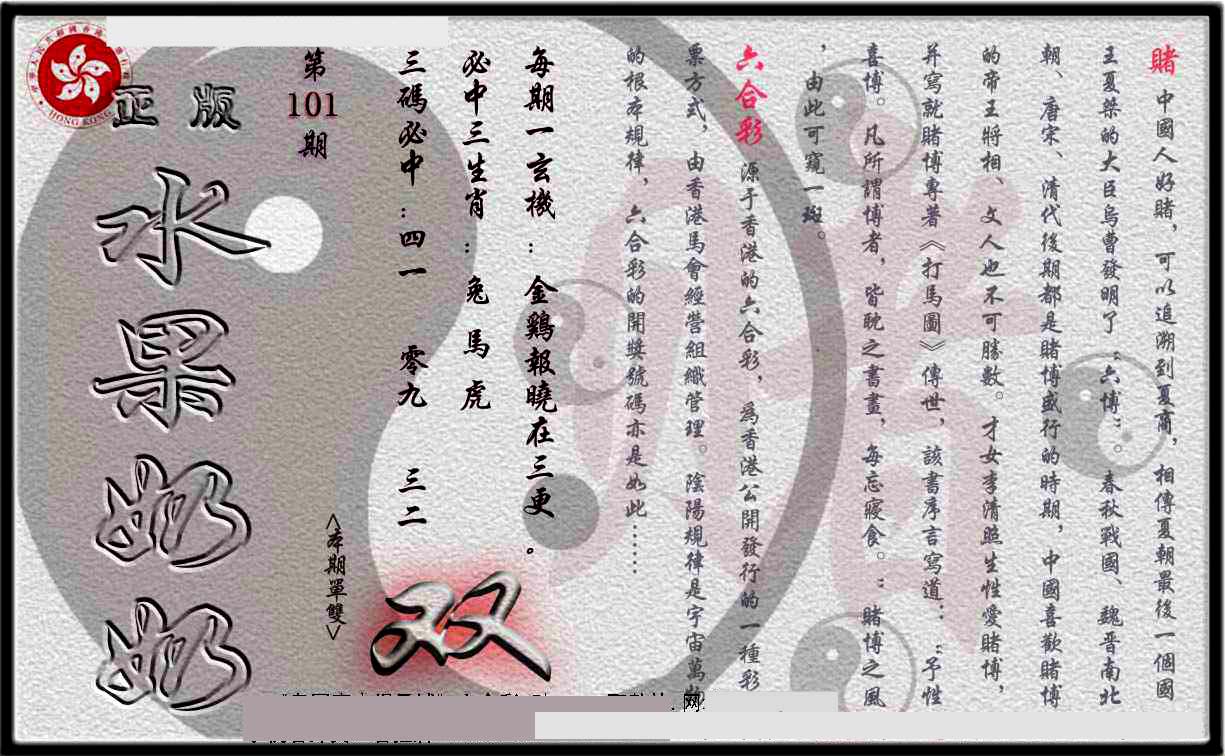 賭 中國人好賭，可以追溯到夏商，相傳夏朝最後一個國
王夏桀的大臣烏曹發明了“六博”。春秋戰國、魏晋南北
朝、唐宋、清代後期都是賭博盛行的時期，中國喜歡賭博
的帝王將相、文人也不可勝數。才女李清照生性愛賭博，
并寫就賭博專著《打馬圖》傳世，該書序言寫道：“予性
喜博。凡所謂博者，皆耽之書畫，每忘寢食。”賭博之風
，由此可窺一斑。
六合彩 源于香港的六合彩，爲香港公開發行的一種彩
票方式，由香港馬會經營組織管理。陰陽規律是宇宙萬物
的根本規律，六合彩的開獎號碼亦是如此……
每期一玄機：金鷄報曉在三更。
必中三生肖：兔 馬 虎
三碼必中：四一 零九 三二
<本期單雙>
双
第
101
期
正版
水果奶奶
HONG KONG
网